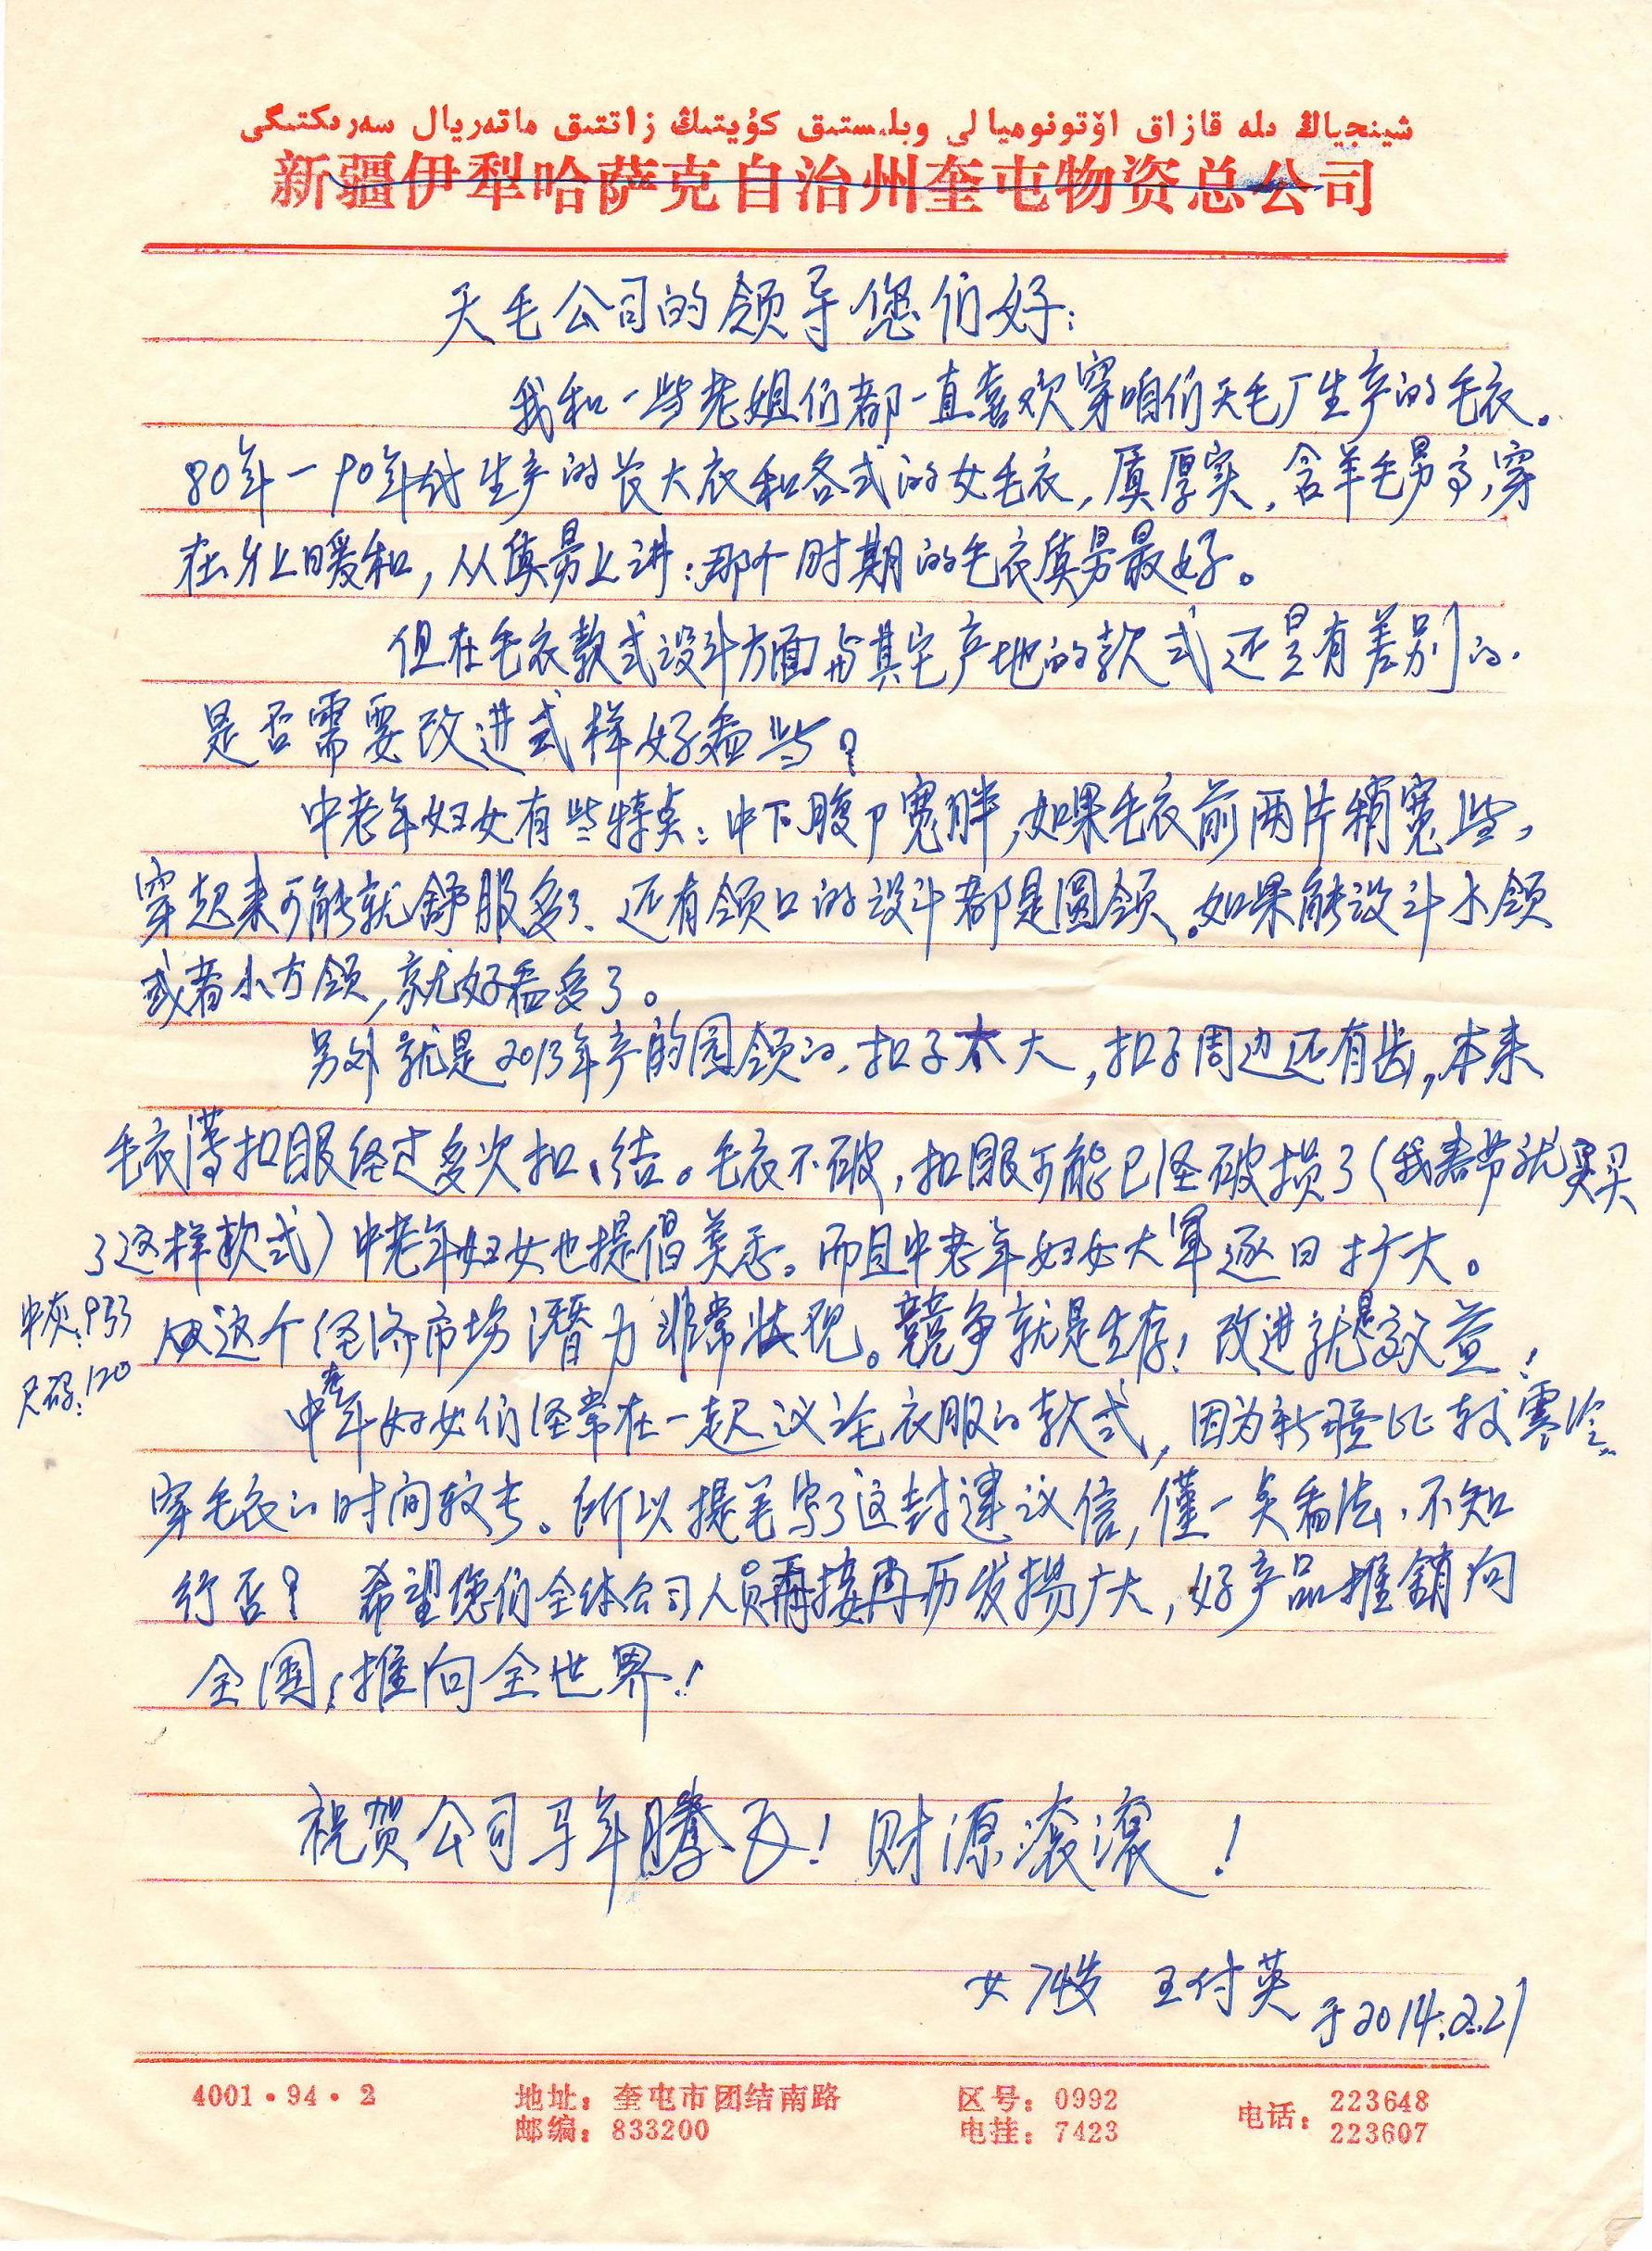 شينجياڭ ىله قازاق اۆتونوميالى وبلىستىق كۇيتىڭ زاتتىق ماتەريال سەرىكتىگى
新疆伊犁哈萨克自治州奎屯物资总公司
天毛公司的领导您们好:
我和一些老姐们都一直喜欢穿咱们天毛厂生产的毛衣。
80年一90年代生产的长大衣和各式的女毛衣,质厚实,含羊毛量高,穿
在身上暖和,从质量上讲:那个时期的毛衣质量最好。
但在毛衣款式设计方面与其它产地的款式还是有差别的.
是否需要改进式样好看些?
中老年妇女有些特点:中下腹部宽胖,如果毛衣前两片稍宽些,
穿起来可能就舒服多了、还有领口的设计都是圆领。如果能设计小领
或者小方领,就好看多了。
另外就是2013年产的圆领的.扣子太大,扣子周边还有齿,本来
毛衣薄扣眼经过多次扣、结。毛衣不破,扣眼可能已经破损了(我春节就买
了这样款式)中老年妇女也提倡美丽。而且中老年妇女大军逐日扩大。
中灰:933
从这个经济市场潜力非常壮观。竞争就是生存!改进就是效益!
尺码:120
中老年妇女们经常在一起议论衣服的款式,因为新疆比较寒冷
穿毛衣的时间较长。所以提笔写了这封建议信,仅一点看法、不知
行否? 希望您们全体公司人员再接再历发扬广大,好产品推销向
全国,推向全世界!
祝贺公司马年腾飞!财源滚滚!
女 74岁 王付英 于2014.2.21
4001·94·2 地址:奎屯市团结南路 区号:0992 电话:223648
邮编:833200 电挂:7423 223607